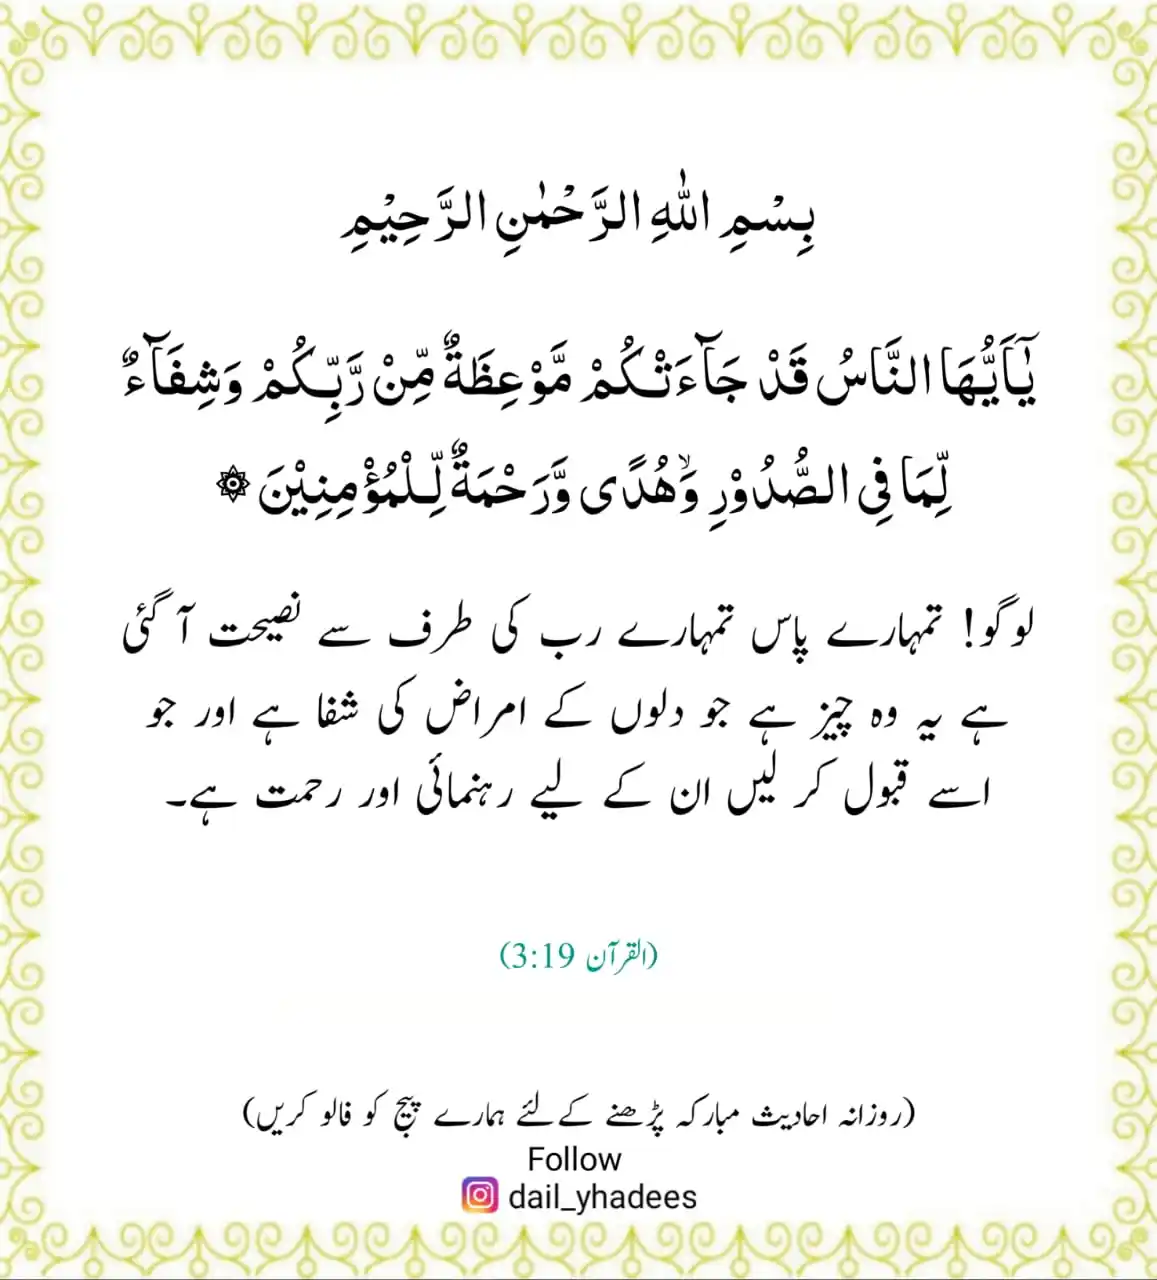 بِسْمِ اللّٰهِ الرَّحْمٰنِ الرَّحِيْمِ
يٰٓاَيُّهَا النَّاسُ قَدْ جَآءَتْكُمْ مَّوْعِظَةٌ مِّنْ رَّبِّكُمْ وَشِفَآءٌ
لِّمَا فِى الصُّدُوْرِ ۙ وَهُدًى وَّرَحْمَةٌ لِّلْمُؤْمِنِيْنَ ۞
لوگو! تمہارے پاس تمہارے رب کی طرف سے نصیحت آ گئی
ہے یہ وہ چیز ہے جو دلوں کے امراض کی شفا ہے اور جو
اسے قبول کر لیں ان کے لیے رہنمائی اور رحمت ہے۔
(القرآن 3:19)
(روزانہ احادیث مبارکہ پڑھنے کےلئے ہمارے پیج کو فالو کریں)
Follow
dail_yhadees